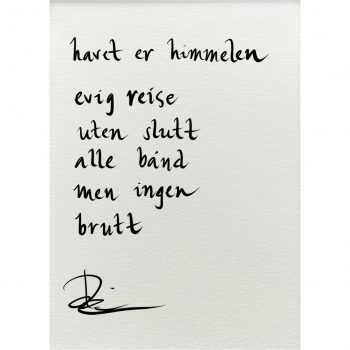 havet er himmelen
evig reise
uten slutt
alle bånd
men ingen
brutt